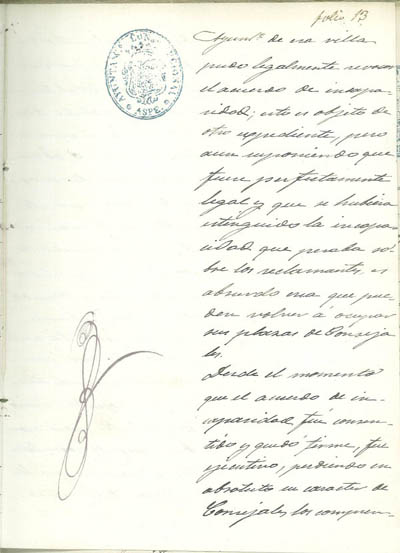 folio 13
AYUNTAMIENTO CONSTITUCIONAL
ASPE
Ayunt.º de esa villa
pudo legalmente revocar
el acuerdo de incapa-
cidad; esto es objeto de
otro expediente, pero
aun suponiendo que
fuese perfectamente
legal y que se hubiera
extinguido la incapa-
cidad que pesaba so-
bre los reclamantes, es
absurdo creer que pue-
den volver á ocupar
sus plazas de Conceja-
les.
Desde el momento
que el acuerdo de in-
capacidad fué consen-
tido y quedó firme, fué
ejecutivo, perdiendo en
absoluto su caracter de
Concejales los compren-